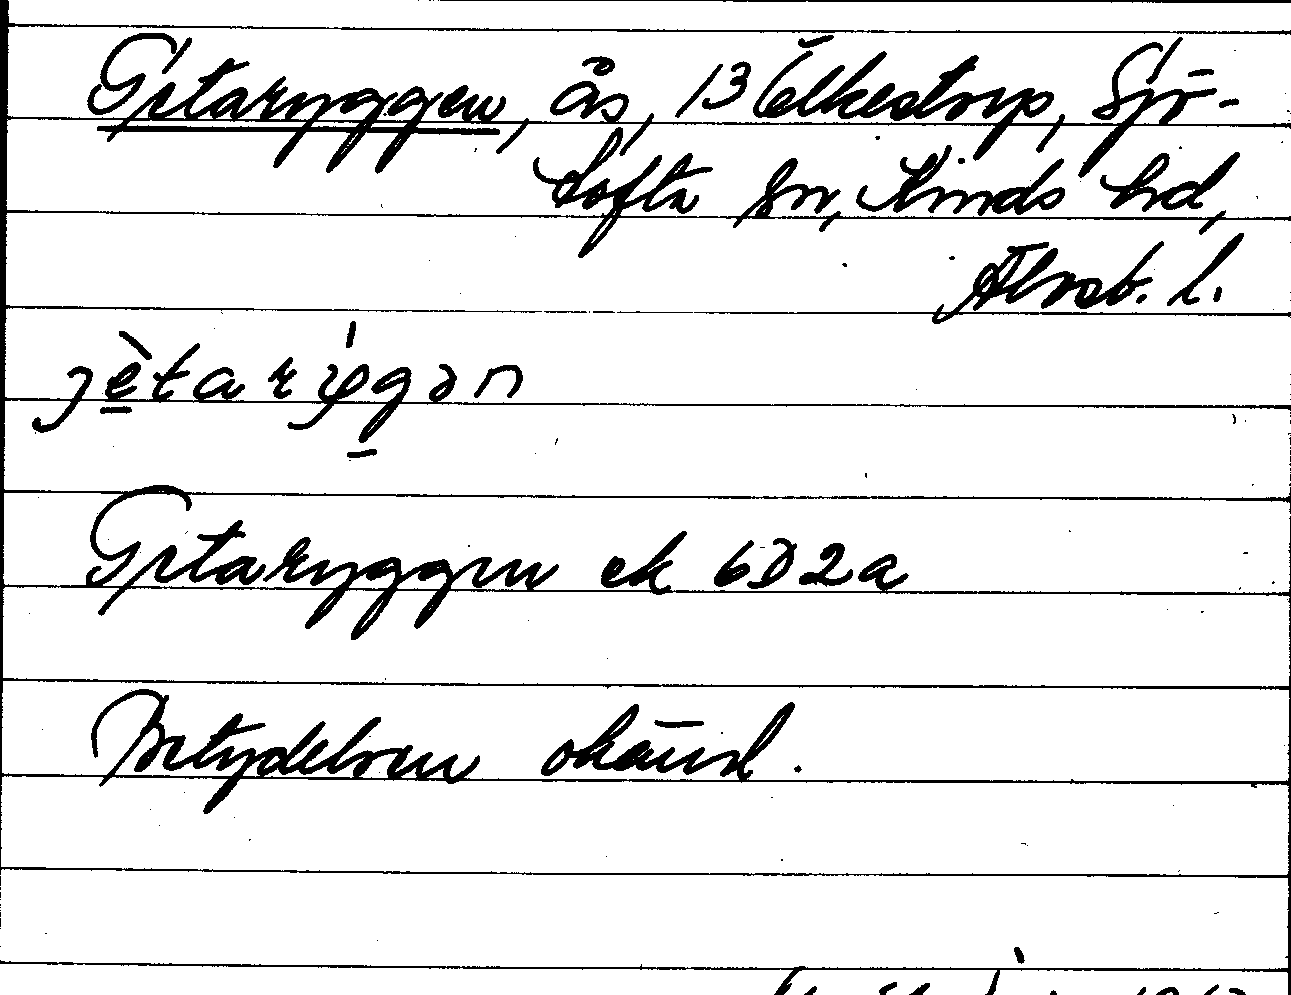 Getaryggen, ås, 13 Ölkestorp, Sjö-
tofta sn, Kinds hd,
Älvsb. l.
jètarýgən
Getaryggen ek 6D2a
Betydelsen okänd.